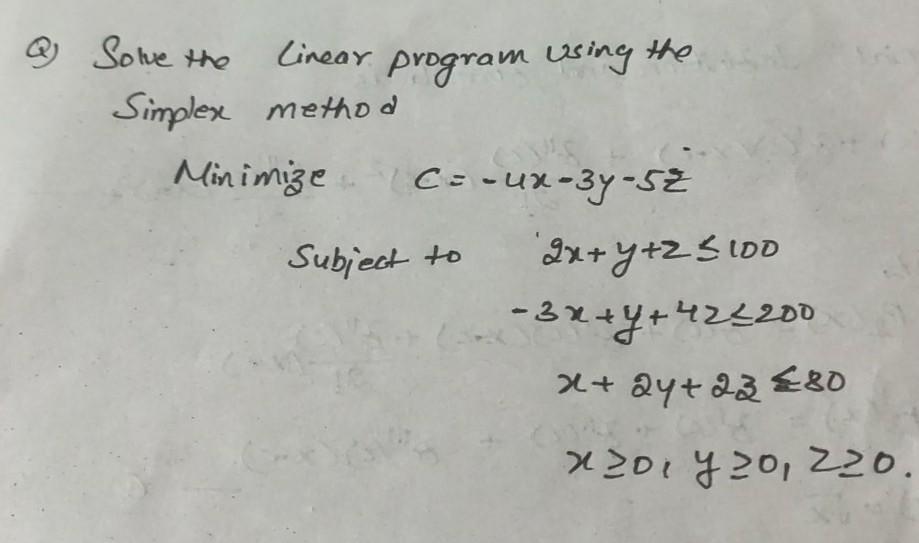 Q) Solve the linear program using the
Simplex method
Minimize C = -4x-3y-5z
Subject to 2x+y+z ≤ 100
-3x+y+4z ≤ 200
x+2y+2z ≤ 80
x ≥ 0, y ≥ 0, z ≥ 0.